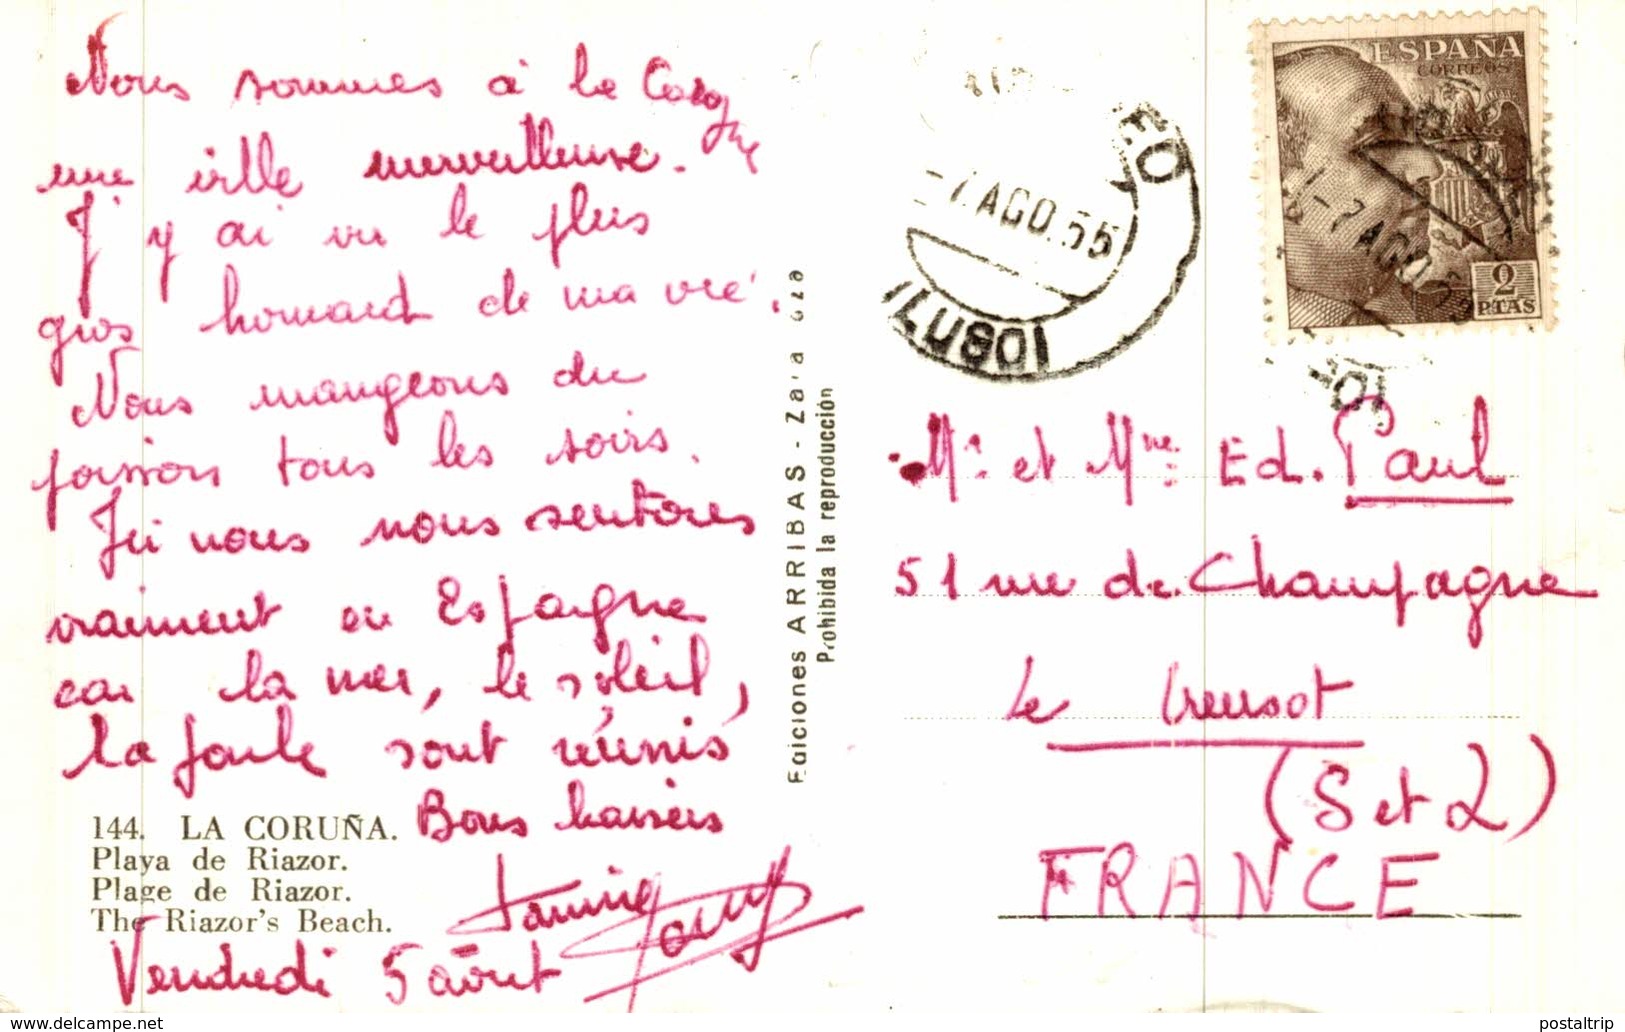 Nous sommes à la Corogne
une ville merveilleuse.
J'y ai vu le plus
gros homard de ma vie.
Nous mangeons du
poisson tous les soirs.
Ici nous nous sentons
vraiment en Espagne
car la mer, le soleil,
la foule sont réunis
Bons baisers
144. LA CORUÑA.
Playa de Riazor.
Plage de Riazor.
The Riazor's Beach.
Vendredi 5 août
Ediciones ARRIBAS - Zaragoza
Prohibida la reproducción
-7 AGO.55
ESPAÑA
CORREOS
2
PTAS
-7 AGO
Mr. et Mme. Ed. Paul
51 rue de Champagne
Le Creusot
(S et L)
FRANCE
www.delcampe.net
postaltrip